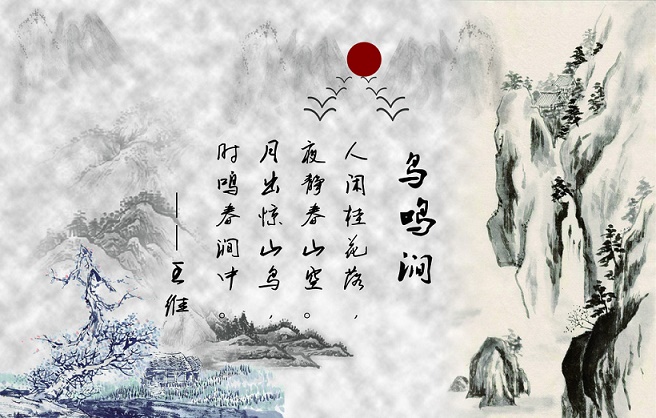 鸟鸣涧
人闲桂花落，
夜静春山空。
月出惊山鸟，
时鸣春涧中。
——王维